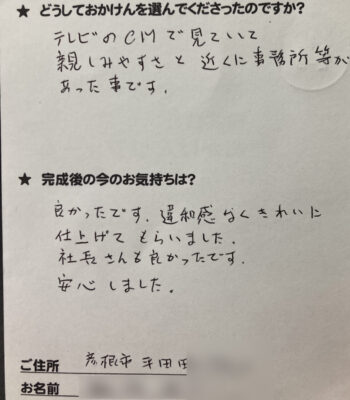 ★ どうしておかけんを選んでくださったのですか?
テレビのCMで見ていて
親しみやすさと近くに事務所等が
あった事です。
★ 完成後の今のお気持ちは?
良かったです。違和感なくきれいに
仕上げてもらいました。
社長さんも良かったです。
安心しました。
ご住所 彦根市平田
お名前